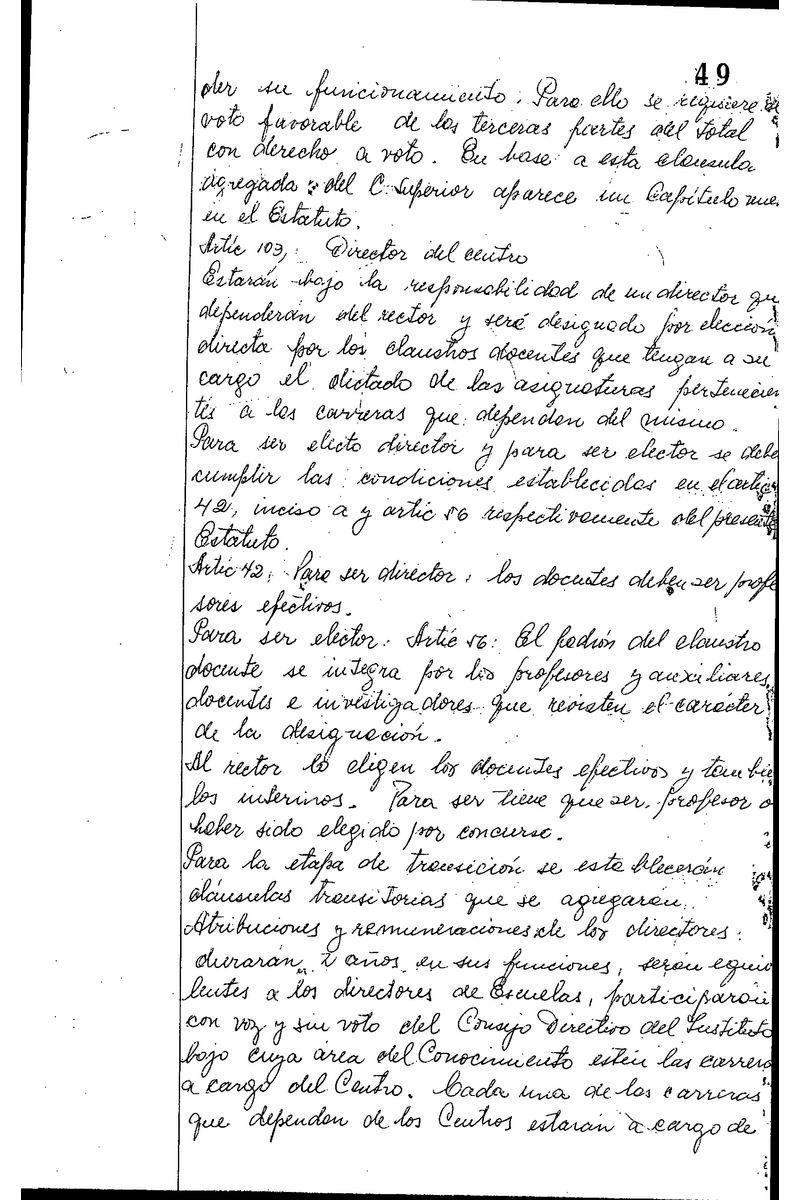 49
der su funcionamiento. Para ello se requiere el
voto favorable de las terceras partes del total
con derecho a voto. En base a esta clausula
agregada del C. Superior aparece un Capítulo nue
en el Estatuto.
Artíc 103, Director del centro
Estarán bajo la responsabilidad de un director que
dependerán del rector y será designado por elección
directa por los claustros docentes que tengan a su
cargo el dictado de las asignaturas pertenecien
tes a las carreras que dependan del mismo.
Para ser electo director y para ser elector se debe
cumplir las condiciones establecidas en el artíc
42, inciso a y artic 56 respectivamente del presente
Estatuto.
Artíc 42: Para ser director: los docentes deben ser profe
sores efectivos.
Para ser elector: Artíc 56: El padrón del claustro
docente se integra por los profesores y auxiliares
docentes e investigadores que revisten el carácter
de la designación.
Al rector lo eligen los docentes efectivos y tambié
los interinos. Para ser tiene que ser profesor o
haber sido elegido por concurso.
Para la etapa de transición se establecerán
cláusulas transitorias que se agregarán.
Atribuciones y remuneraciones de los directores:
durarán 2 años en sus funciones, serán equiva
lentes a los directores de Escuelas, participarán
con voz y sin voto del Consejo Directivo del Instituto
bajo cuya área del Conocimiento estén las carrera
a cargo del Centro. Cada una de las carreras
que dependan de los Centros estarán a cargo de